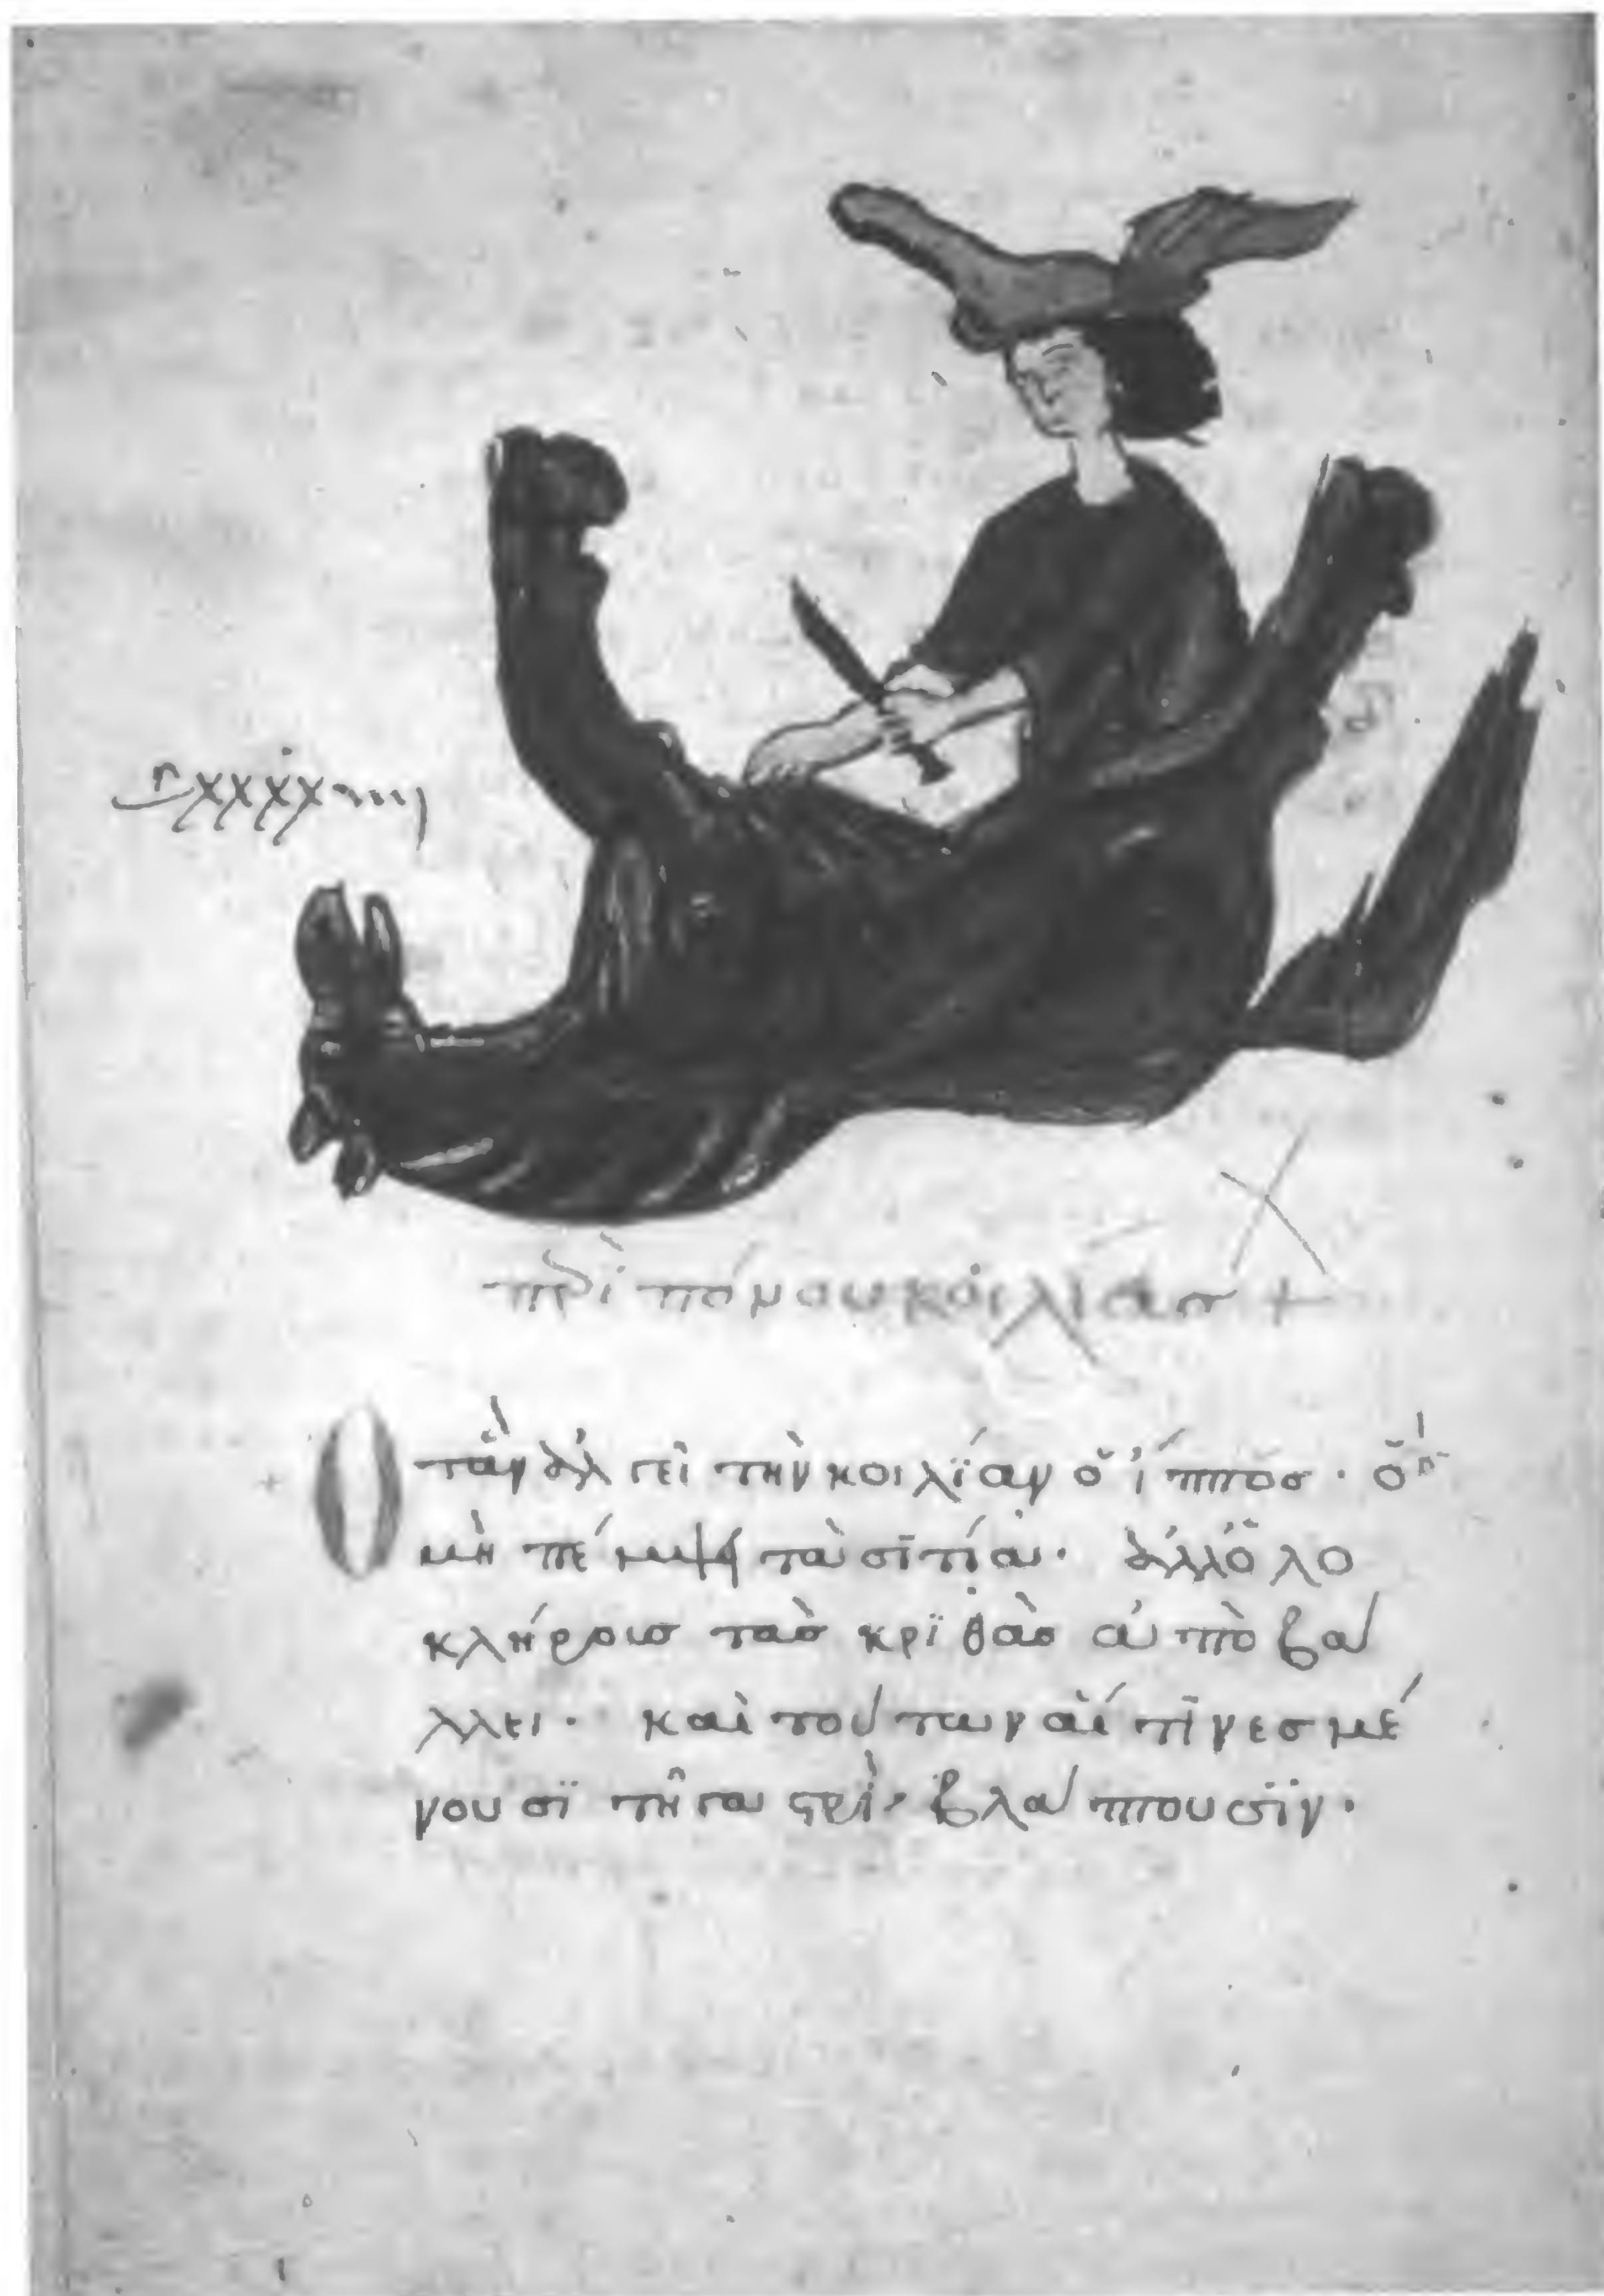 πρὶ πόνου κοιλίασ +
Ὅταν ἀλγεῖ τὴν κοιλίαν ὁ ἵπποσ · ὅτ
μὴ πέμψη τὰ σιτία · ἀλλ ὁλο
κλήρουσ τὰσ κριθὰσ ἀποβά
λλει · καὶ τούτων αἵ τινεσ μέ
νουσι τῆ γαστρὶ, βλάπτουσιν ·